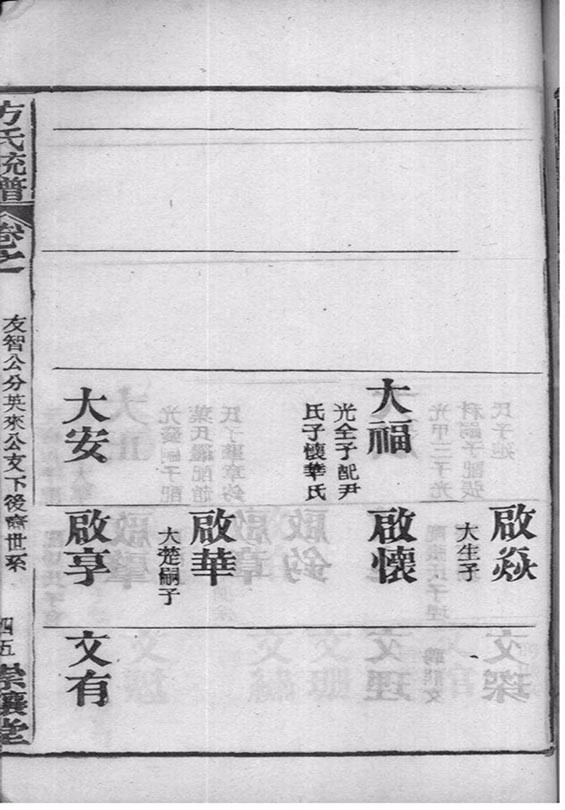 大福
光全子配尹
氏子懷華氏
大安
啟焱
大生子
啟懷
啟華
大楚嗣子
啟享
文有
方氏統譜
卷之
友智公分英來公文下後裔世系
四五
崇讓堂